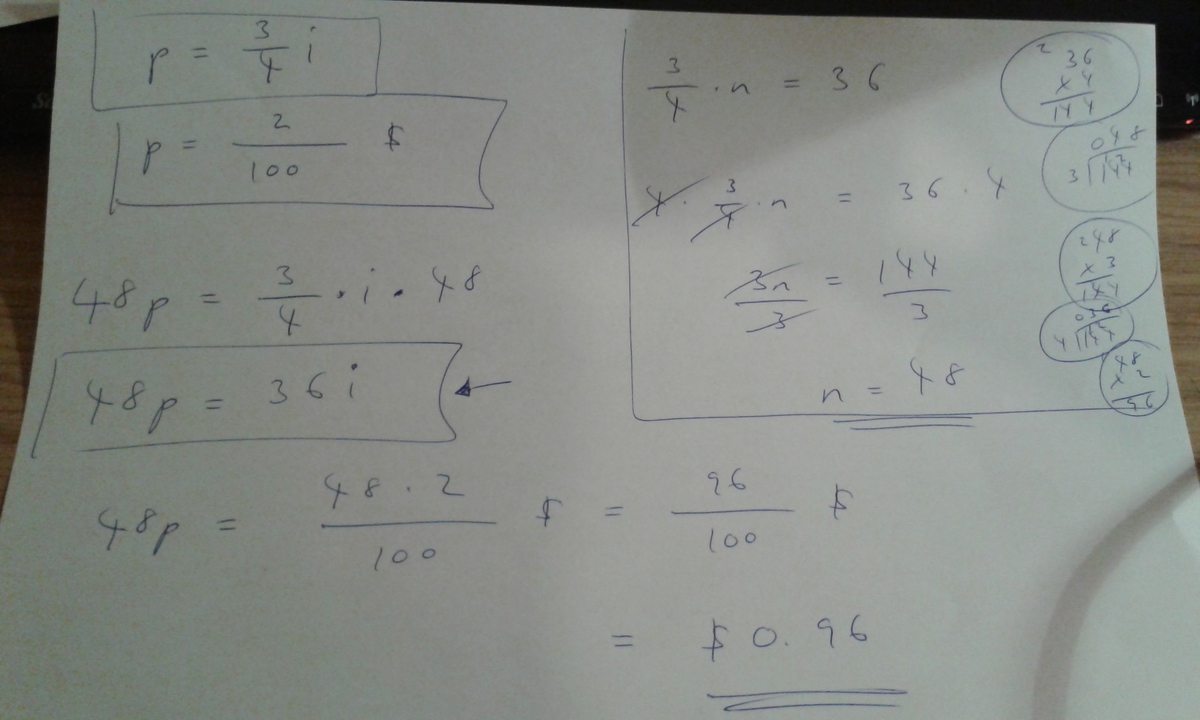 p = 3/4 i
p = 2/100 $
48p = 3/4 · i · 48
48p = 36i
48p = 48 · 2 / 100 $ = 96/100 $
= $0.96
3/4 · n = 36
4 · 3/4 · n = 36 · 4
3n/3 = 144/3
n = 48
2 36
x 4
144
048
3 144
2 48
x 3
48
x 2
96